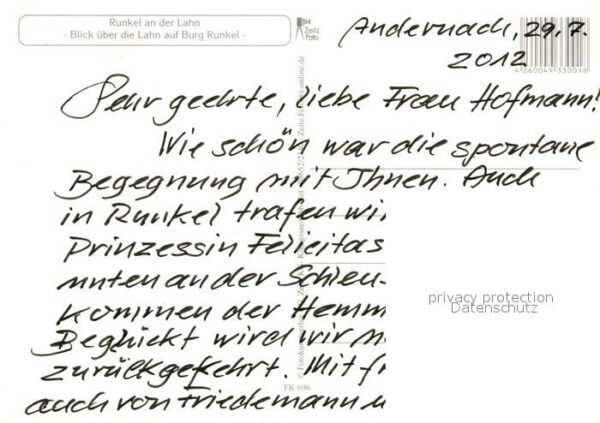 Runkel an der Lahn
- Blick über die Lahn auf Burg Runkel -
Zeitz
Foto
Andernach, 29.7.
2012
4 260049 350018
Sehr geehrte, liebe Frau Hofmann!
Wie schön war die spontane
Begegnung mit Ihnen. Auch
in Runkel trafen wir
Prinzessin Felicitas
unten an der Schleu-
kommen der Hemm
Beglückt wird wir n
zurückgekehrt. Mit f
auch von Friedemann u
privacy protection
Datenschutz
FK 696